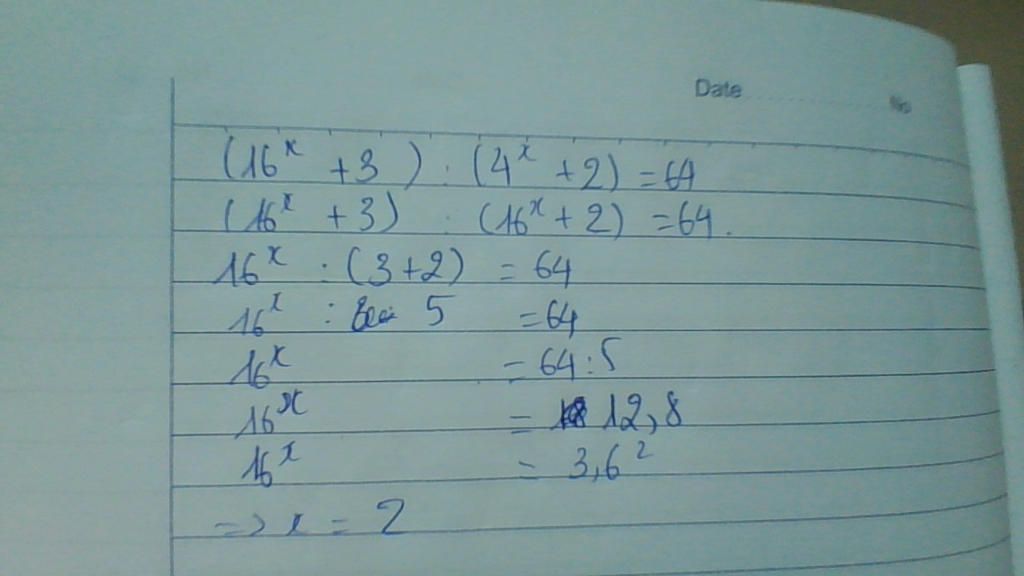 Date No
(16ˣ + 3) : (4ˣ + 2) = 64
(16ˣ + 3) : (16ˣ + 2) = 64.
16ˣ : (3+2) = 64
16ˣ : 5 = 64
16ˣ = 64:5
16ˣ = 12,8
16ˣ = 3,6²
=> x = 2